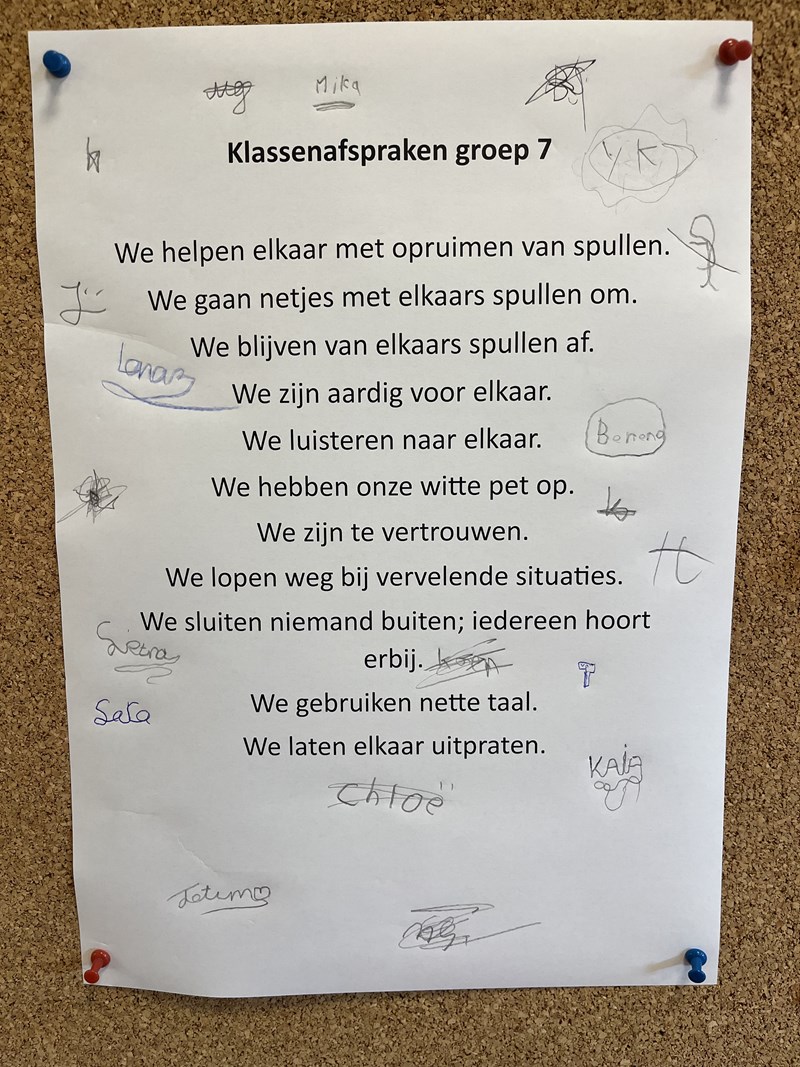 Mika
Klassenafspraken groep 7
YK
We helpen elkaar met opruimen van spullen.
We gaan netjes met elkaars spullen om.
We blijven van elkaars spullen af.
We zijn aardig voor elkaar.
We luisteren naar elkaar.
We hebben onze witte pet op.
We zijn te vertrouwen.
We lopen weg bij vervelende situaties.
We sluiten niemand buiten; iedereen hoort
erbij.
T
We gebruiken nette taal.
Sara
We laten elkaar uitpraten.
KAJA
Chloë